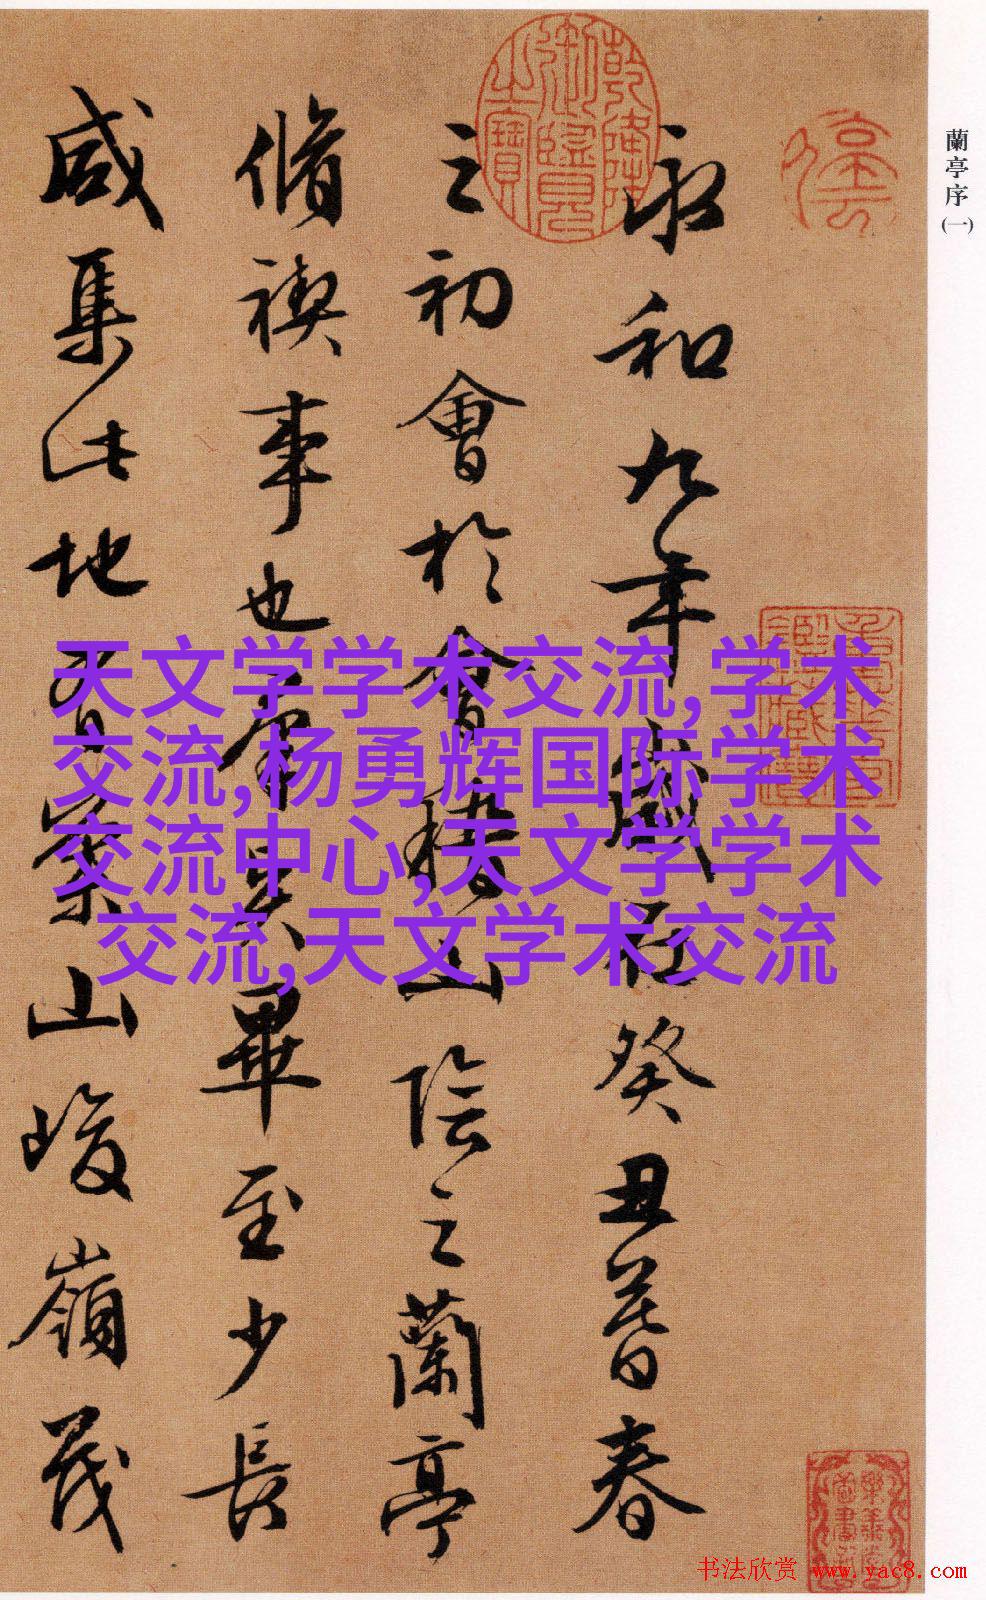 蘭亭序(一)
永和九年歲在癸丑暮春
之初會於會稽山陰之蘭亭
脩禊事也羣賢畢至少長
咸集此地有崇山峻嶺茂
乾隆御覽之寶
天文学学术交流,学术
交流,杨勇辉国际学术
交流中心,天文学学术
交流,天文学术交流
书法欣赏 www.yac8.com